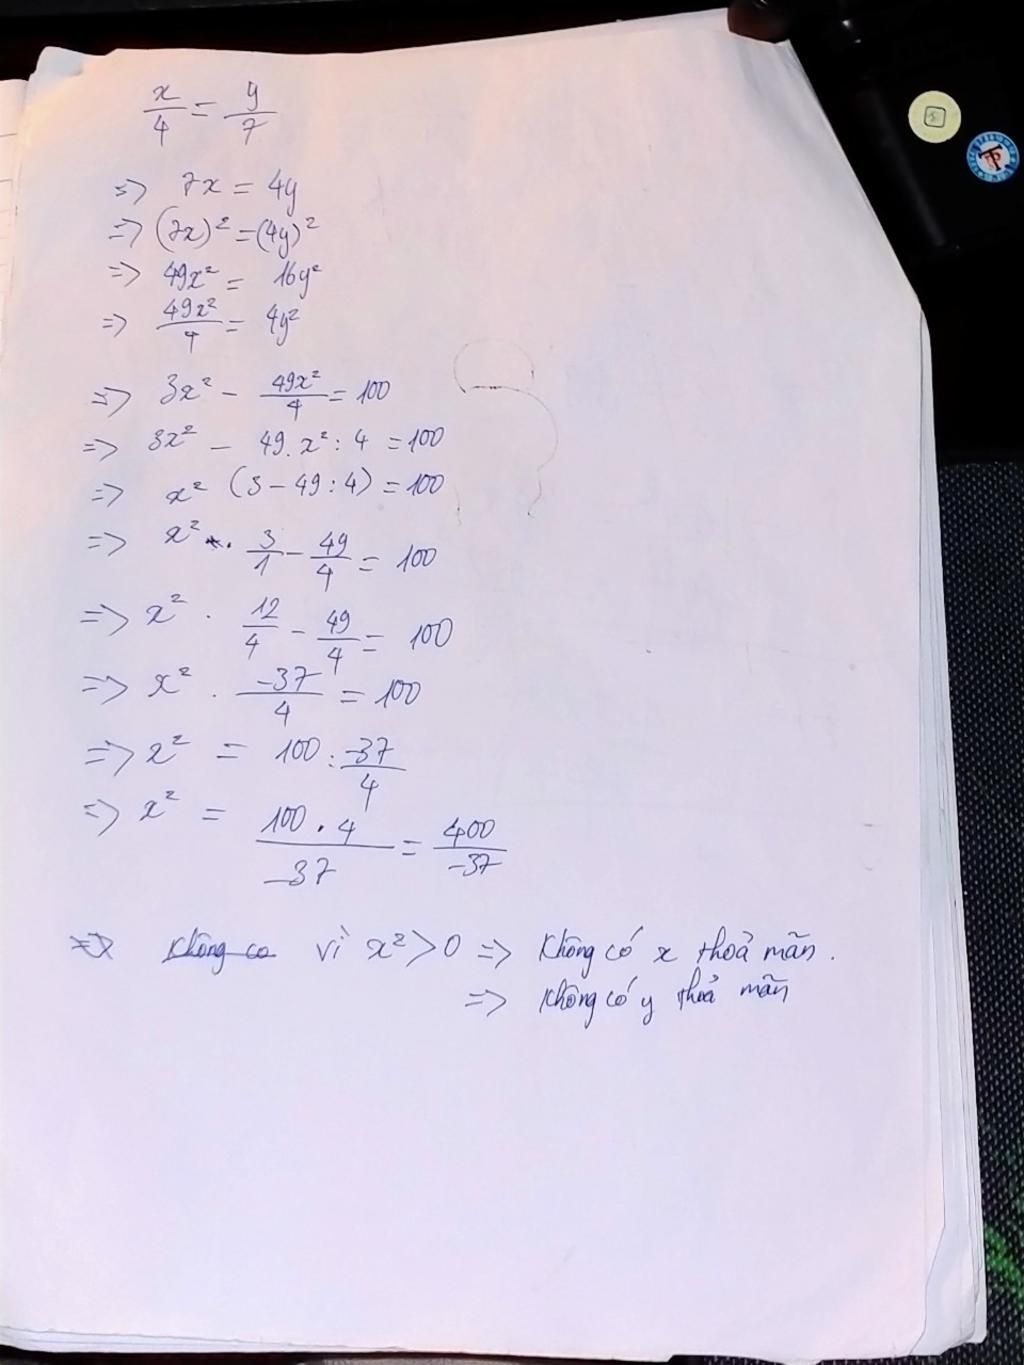 x/4 = y/7
=> 7x = 4y
=> (7x)² = (4y)²
=> 49x² = 16y²
=> 49x²/4 = 4y²
=> 3x² - 49x²/4 = 100
=> 3x² - 49.x² : 4 = 100
=> x² (3 - 49 : 4) = 100
=> x² . 3/1 - 49/4 = 100
=> x² . 12/4 - 49/4 = 100
=> x² . -37/4 = 100
=> x² = 100 : -37/4
=> x² = 100 . 4/-37 = 400/-37
=> Không co vì x² > 0 => Không có x thoả mãn.
=> Không có y thoả mãn